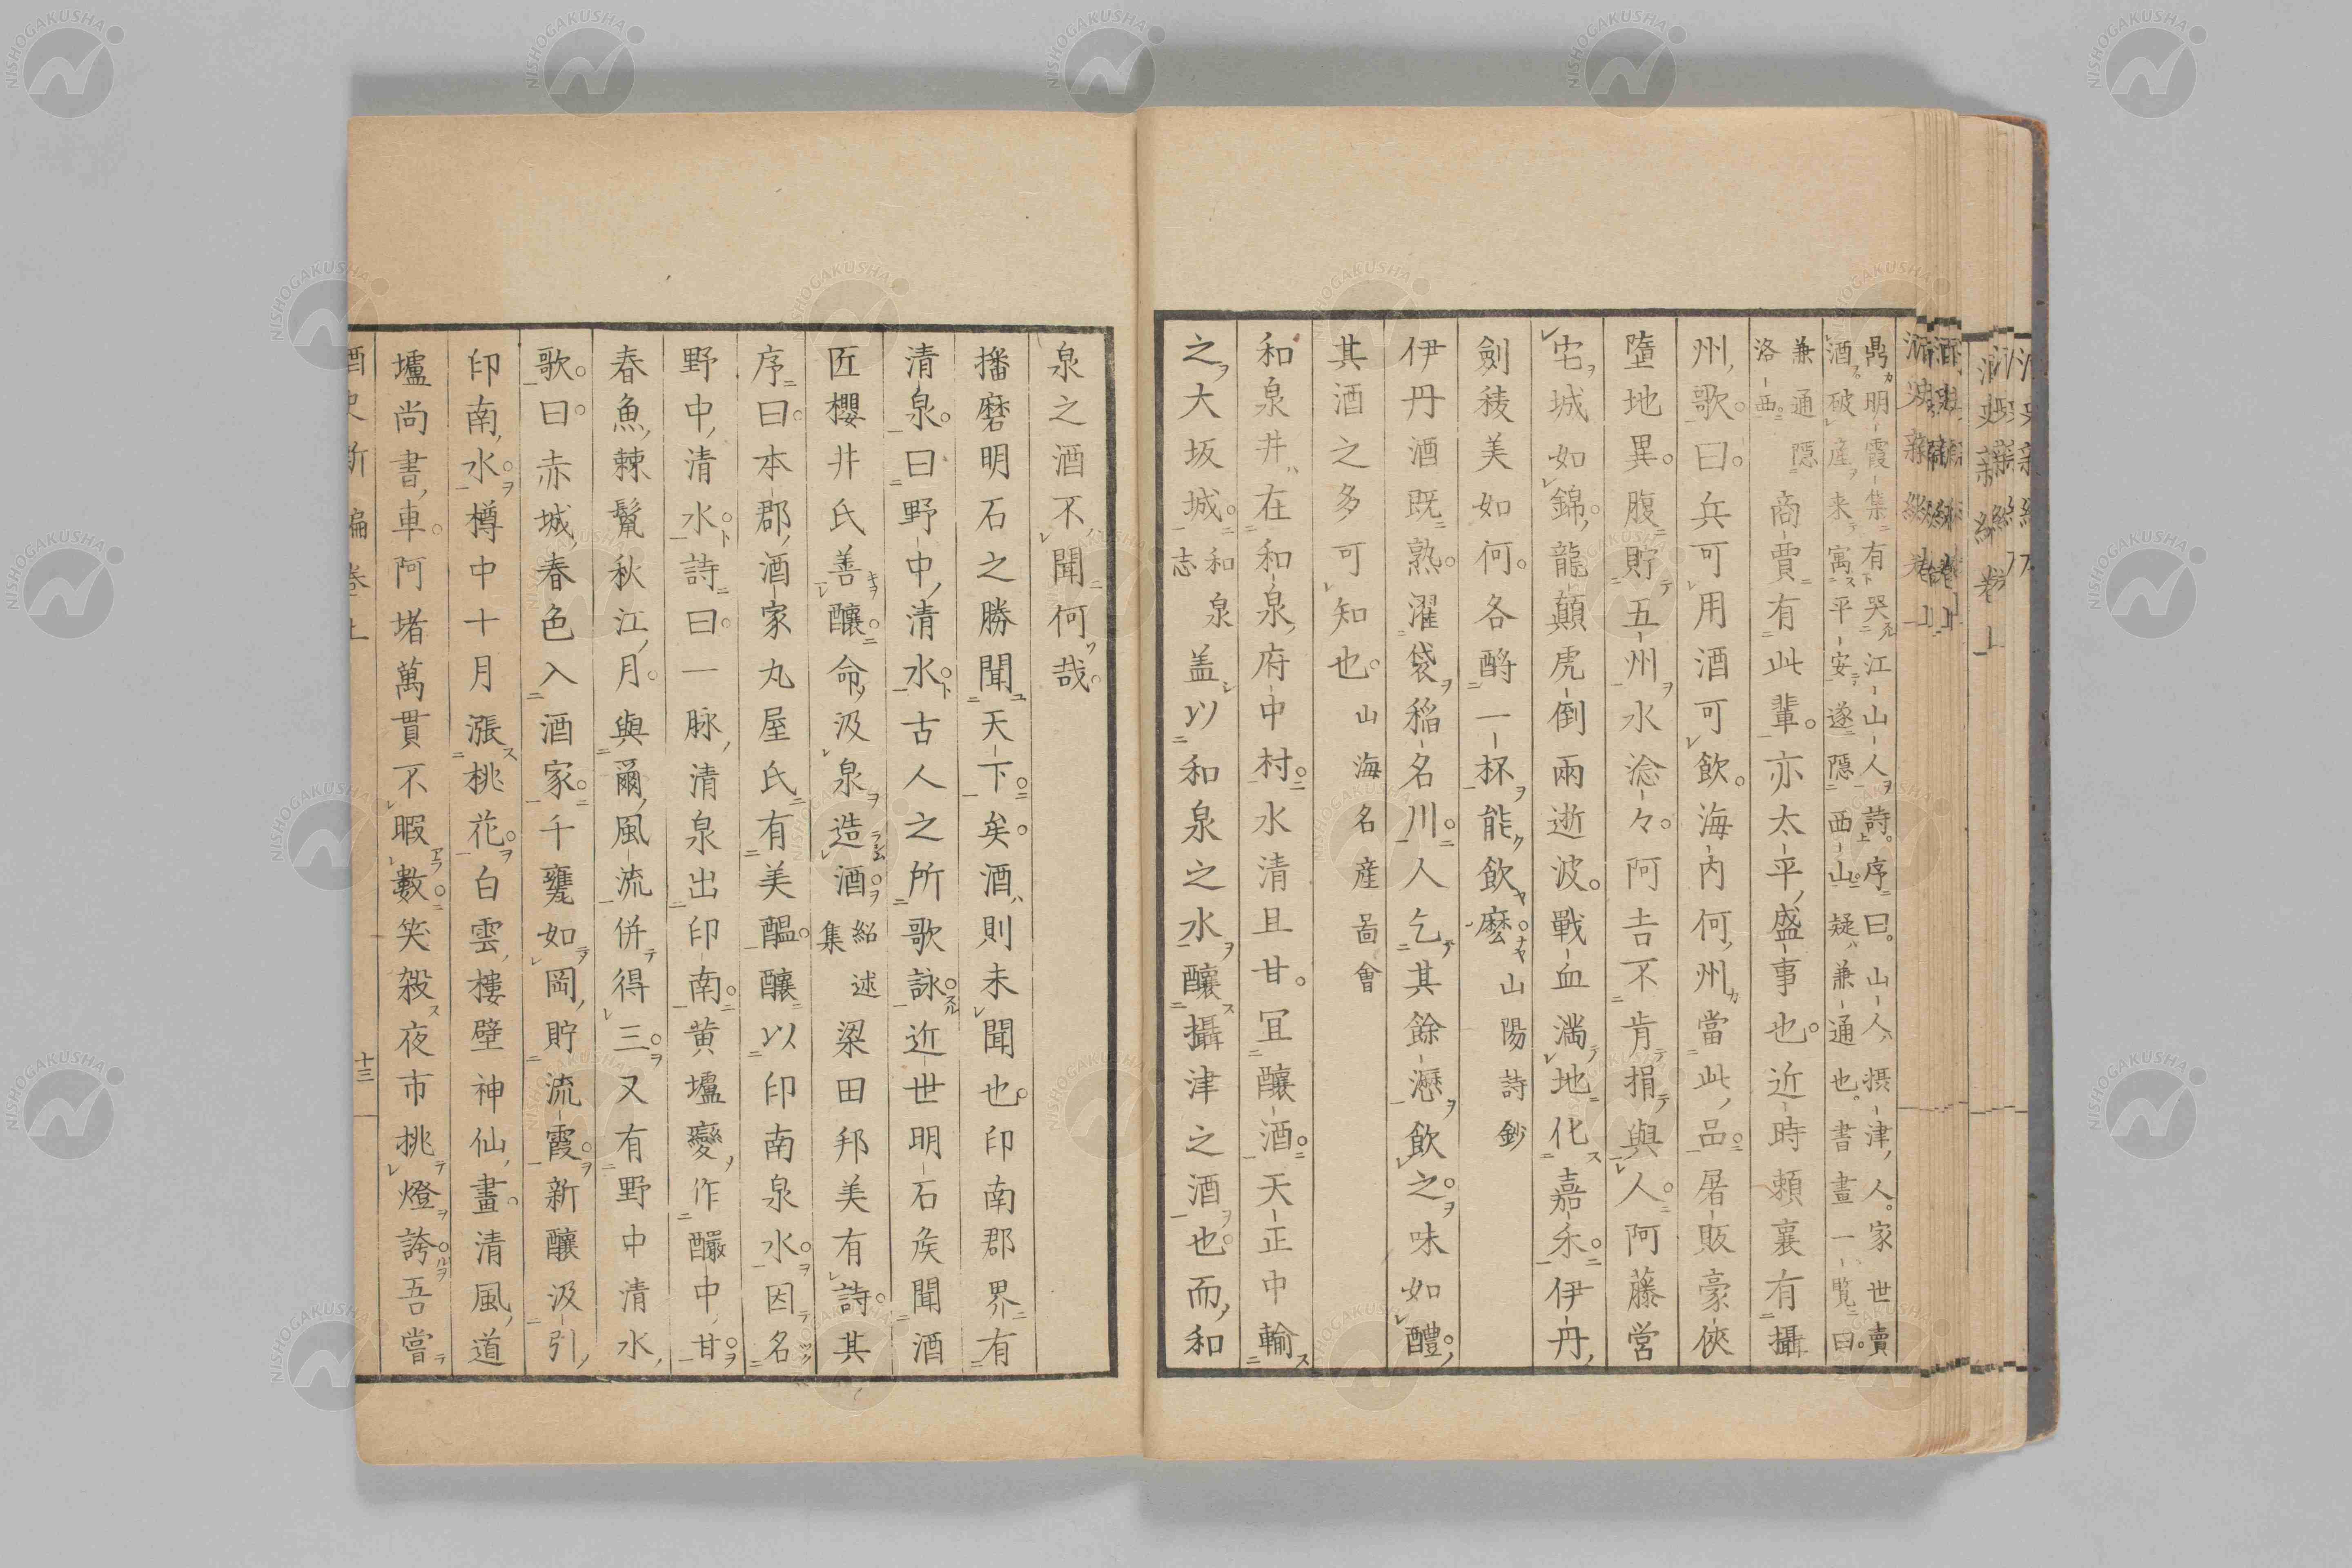 鼎明霞集有哭江山人詩序曰山人摂津人家世賣
酒破産来寓平安遂隠西山疑兼通也書畫一覧曰
兼通隠
洛西
商賈有此輩亦太平盛事也近時頼襄有攝
州歌曰兵可用酒可飲海内何州當此品屠販豪侠
墮地異腹貯五州水淰々阿吉不肯捐與人阿藤営
宅城如錦龍顛虎倒兩逝波戰血満地化嘉禾伊丹
劍稜美如何各酹一杯能飲麼 山陽詩鈔
伊丹酒既熟濯袋稲名川人乞其餘瀝飲之味如醴
其酒之多可知也 山海名産啚會
和泉井在和泉府中村水清且甘冝釀酒天正中輸
之大坂城
和泉
志
盖以和泉之水釀攝津之酒也而和
泉之酒不聞何哉
播磨明石之勝聞天下矣酒則未聞也印南郡界有
清泉曰野中清水古人之所歌詠近世明石矦聞酒
匠櫻井氏善釀命汲泉造酒
紹述
集
梁田邦美有詩其
序曰本郡酒家丸屋氏有美醞釀以印南泉水因名
野中清水詩曰一脉清泉出印南黄壚變作釅中甘
春魚棘鬣秋江月與爾風流併得三又有野中清水
歌曰赤城春色入酒家千甕如岡貯流霞新釀汲引
印南水樽中十月漲桃花白雲樓壁神仙畫清風道
壚尚書車阿堵萬貫不暇數笑殺夜市挑燈誇吾嘗
酒史新編卷上
十三
NISHOGAKUSHA